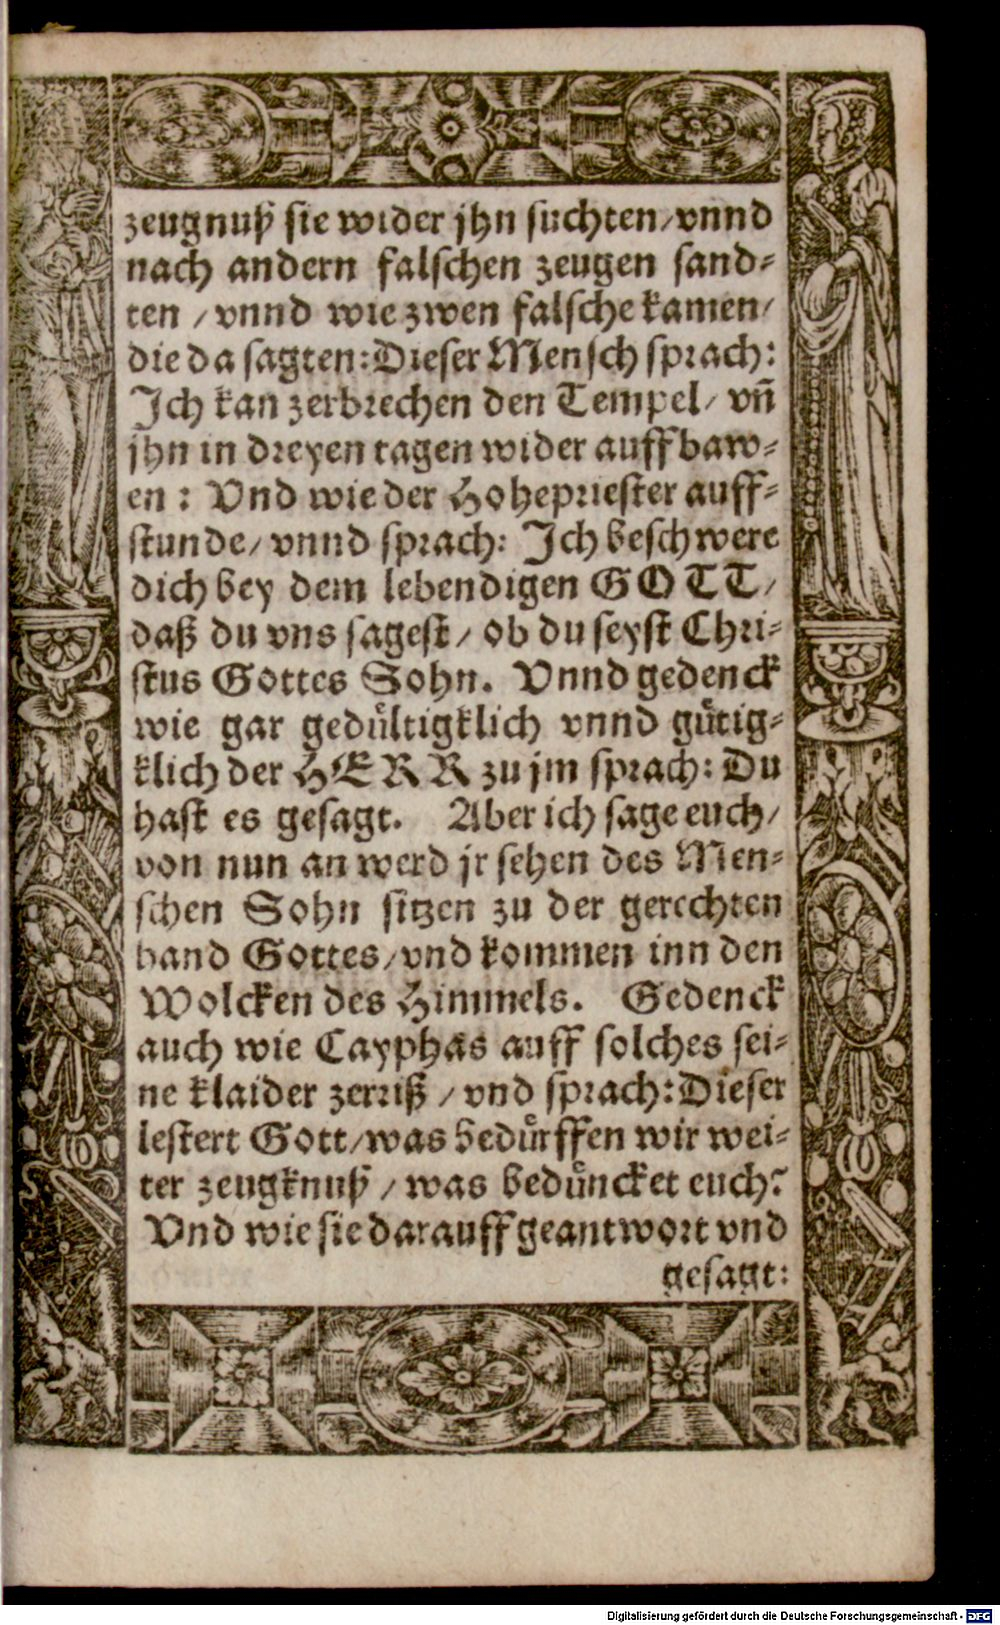 zeugnuß sie wider jhn suchten/vnnd
nach andern falschen zeugen sand⸗
ten / vnnd wie zwen falsche kamen/
die da sagten: Dieser Mensch sprach:
Jch kan zerbrechen den Tempel/ vn̄
jhn in dreyen tagen wider auff baw⸗
en: Vnd wie der Hohepriester auff⸗
stunde/ vnnd sprach: Jch beschwere
dich bey dem lebendigen GOTT/
daß du vns sagest/ ob du seyst Chri⸗
stus Gottes Sohn. Vnnd gedenck
wie gar gedůltigklich vnnd gůtig⸗
klich der HERR zu jm sprach: Du
hast es gesagt. Aber ich sage euch/
von nun an werd jr sehen des Men⸗
schen Sohn sitzen zu der gerechten
hand Gottes/vnd kommen inn den
Wolcken des Himmels. Gedenck
auch wie Cayphas auff solches sei⸗
ne klaider zerriß / vnd sprach: Dieser
lestert Gott/was bedůrffen wir wei⸗
ter zeugknuß / was bedůncket euch?
Vnd wie sie darauff geantwort vnd
gesagt:
Digitalisierung gefördert durch die Deutsche Forschungsgemeinschaft - DFG